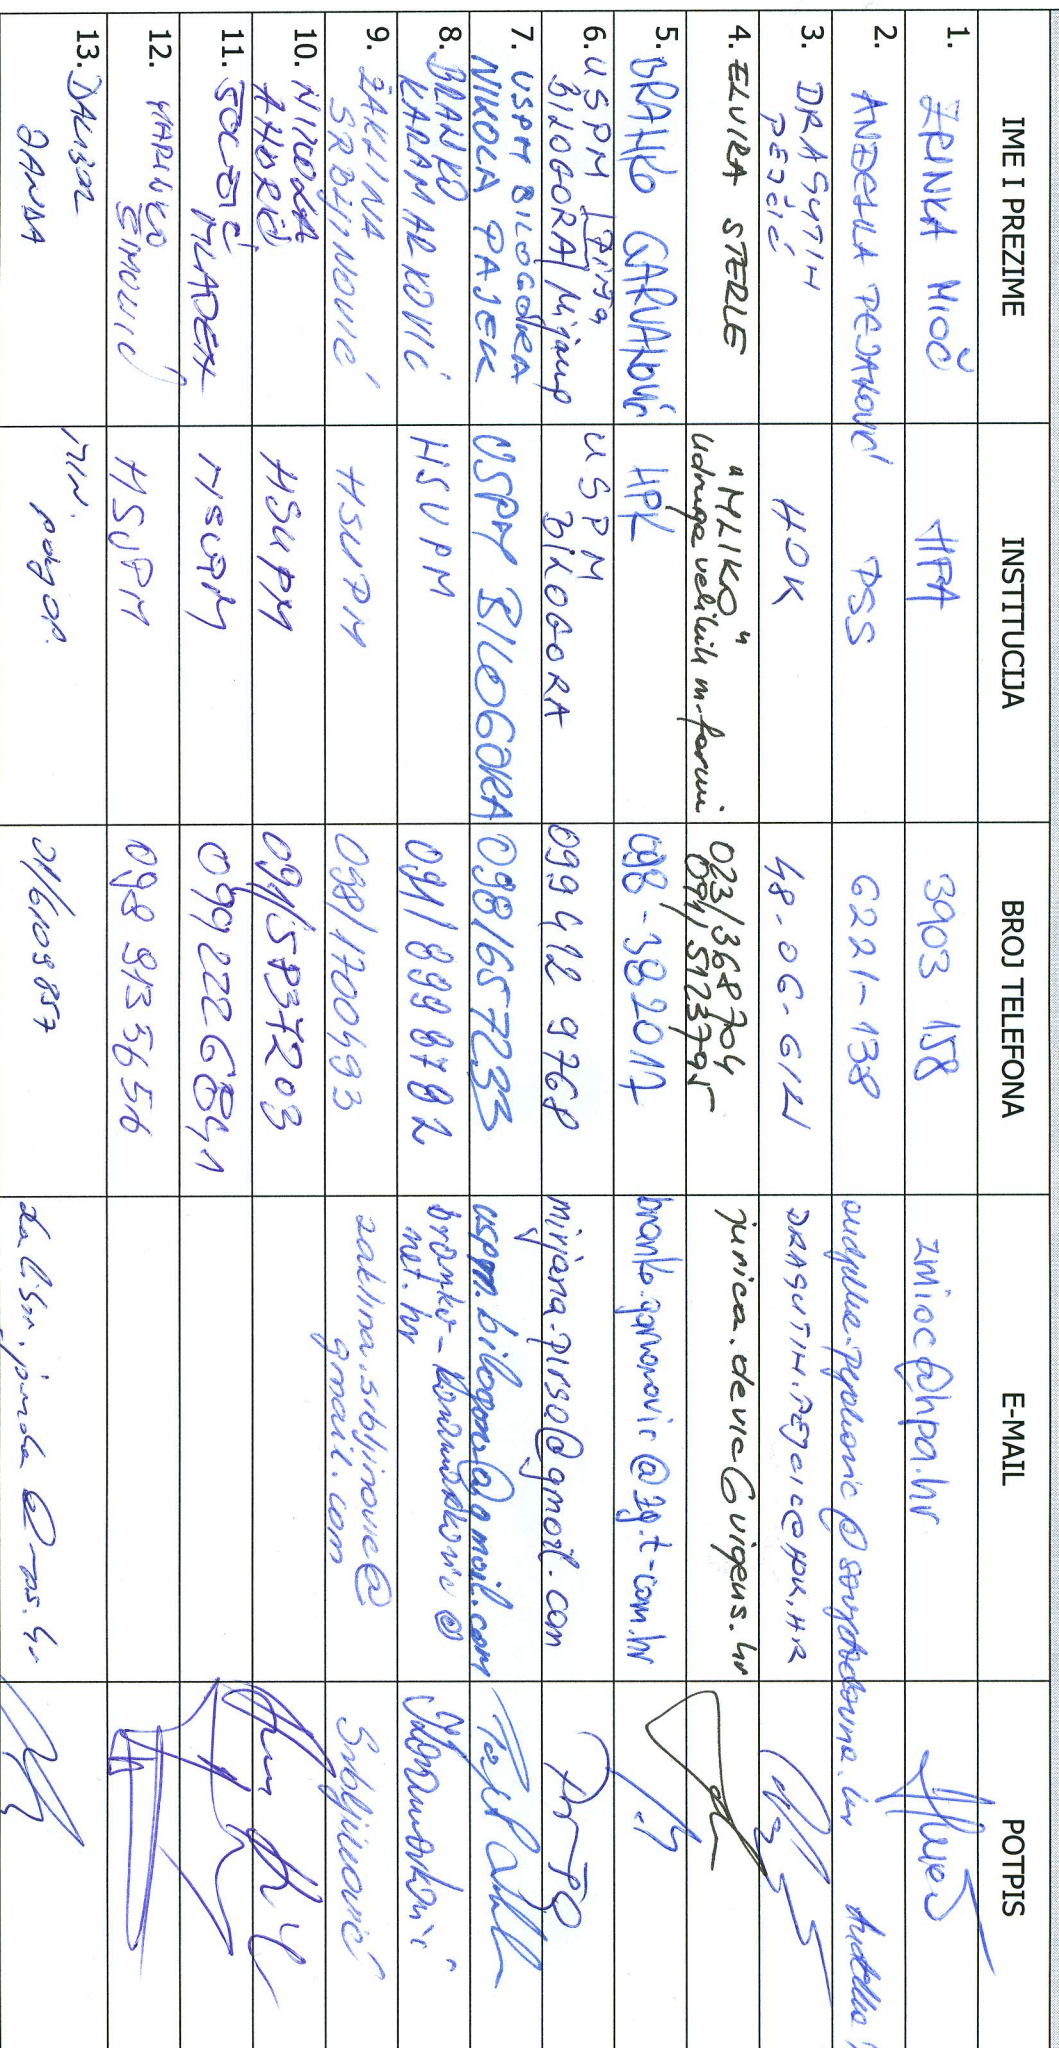 IME I PREZIME INSTITUCIJA BROJ TELEFONA E-MAIL POTPIS
1. ZRINKA MIOČ HPA 3903 158 zmioc@hpa.hr
2. ANĐELKA PEJAKOVIĆ PSS 6221-138
3. DRAGUTIN PEJČIĆ HOK 48-06-611 DRAGUTIN.PEJCIC@HOK.HR
4. ELVIRA STERLE "MLIKO" udruga velikih m. farmi 023/368704
091/5123795 jurica.devic@vigens.hr
5. BRANKO GARVANOVIĆ HPK 098-382017 branko.garvanovic@zg.t-com.hr
6. USPM BILOGORA USPM BILOGORA 099 412 9768 mirjana.pirso@gmail.com
7. USPM BILOGORA
NIKOLA PAJEK USPM BILOGORA 098/657233 uspm.bilogora@gmail.com
8. BRANKO KARAMARKOVIĆ HSUPM 091/8998792 branko-karamarkovic@
net.hr
9. ŽAKLINA SRBLJINOVIĆ HSUPM 098/1700493 zaklina.srbljinovic@
gmail.com Srbljinović
10. ANDRIĆ HSUPM 091/5837203
11. MLADEN HSUPM 0992226841
12. MARINKO HSUPM 098 9133656
13. DALIBOR JANDA MIN. poljop. 01/6109857